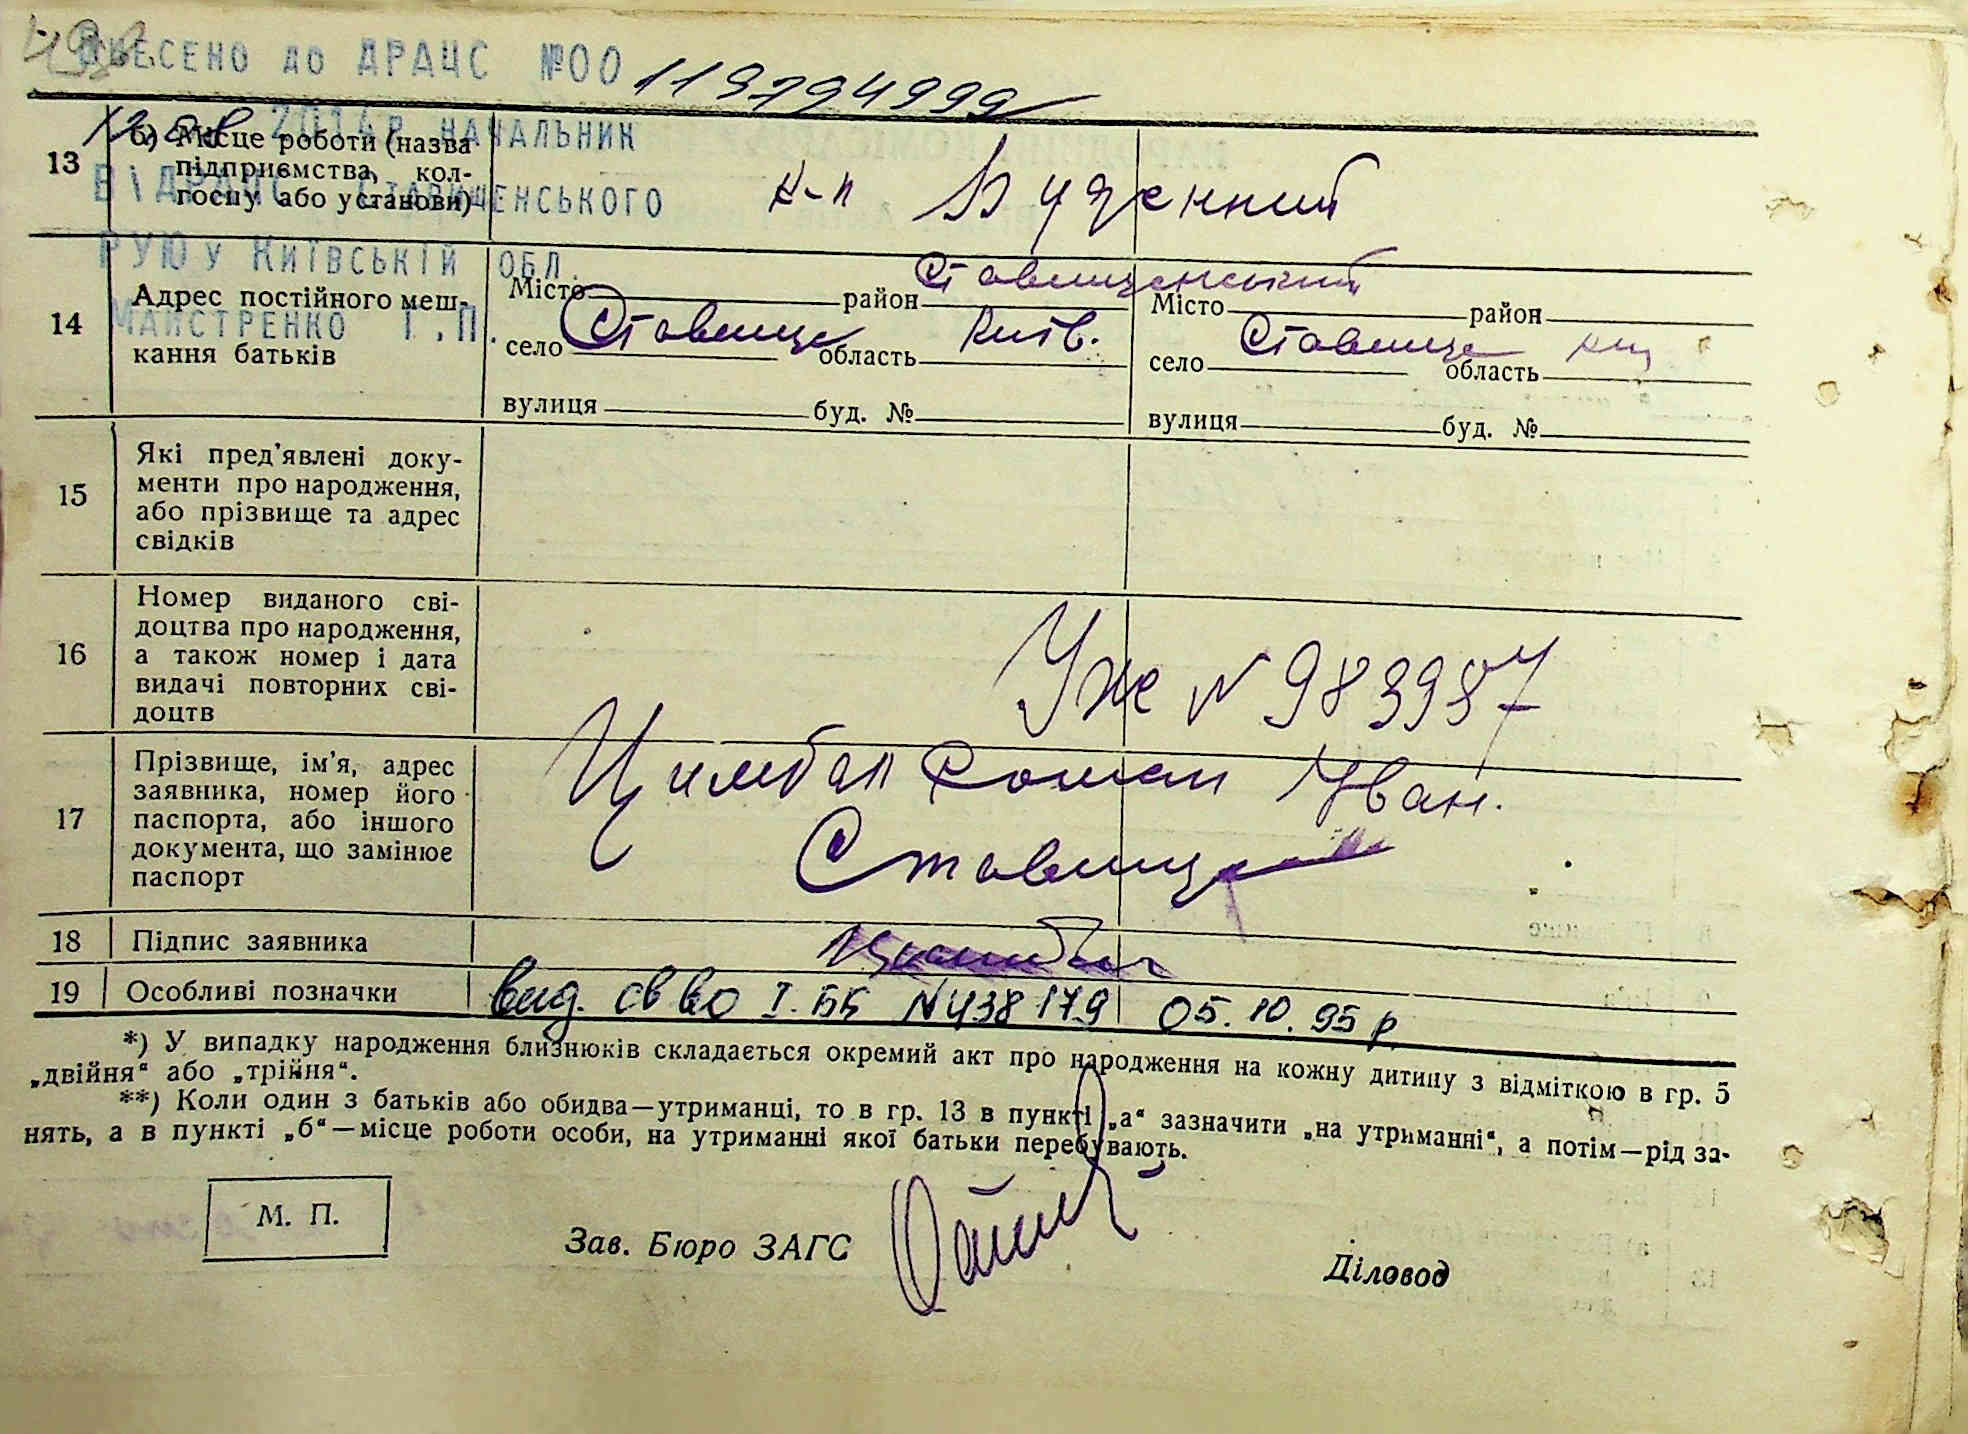 ВНЕСЕНО ДО ДРАЦС №00 119794999
2014р. НАЧАЛЬНИК
ВІДРАЦС СТАВИЩЕНСЬКОГО
РУЮ У КИЇВСЬКІЙ ОБЛ.
МАЙСТРЕНКО Т.П.
13 б) Місце роботи (назва
підприємства, кол-
госпу або установи)
к-п Буденний
14 Адрес постійного меш-
кання батьків
Місто район Ставищенський
село Ставище область Київ.
вулиця буд. №
Місто район
село Ставище область
вулиця буд. №
15 Які пред'явлені доку-
менти про народження,
або прізвище та адрес
свідків
16 Номер виданого сві-
доцтва про народження,
а також номер і дата
видачі повторних сві-
доцтв
УЖ № 983987
17 Прізвище, ім'я, адрес
заявника, номер його
паспорта, або іншого
документа, що замінює
паспорт
Цимбал Роман Іван.
Ставище
18 Підпис заявника
Цимбал
19 Особливі позначки вид. св во I.ББ N438179 05.10.95 р
*) У випадку народження близнюків складається окремий акт про народження на кожну дитину з відміткою в гр. 5
„двійня“ або „трійня“.
**) Коли один з батьків або обидва—утриманці, то в гр. 13 в пункті „а“ зазначити „на утриманні“, а потім—рід за-
нять, а в пункті „б“—місце роботи особи, на утриманні якої батьки перебувають.
М. П.
Зав. Бюро ЗАГС
Діловод